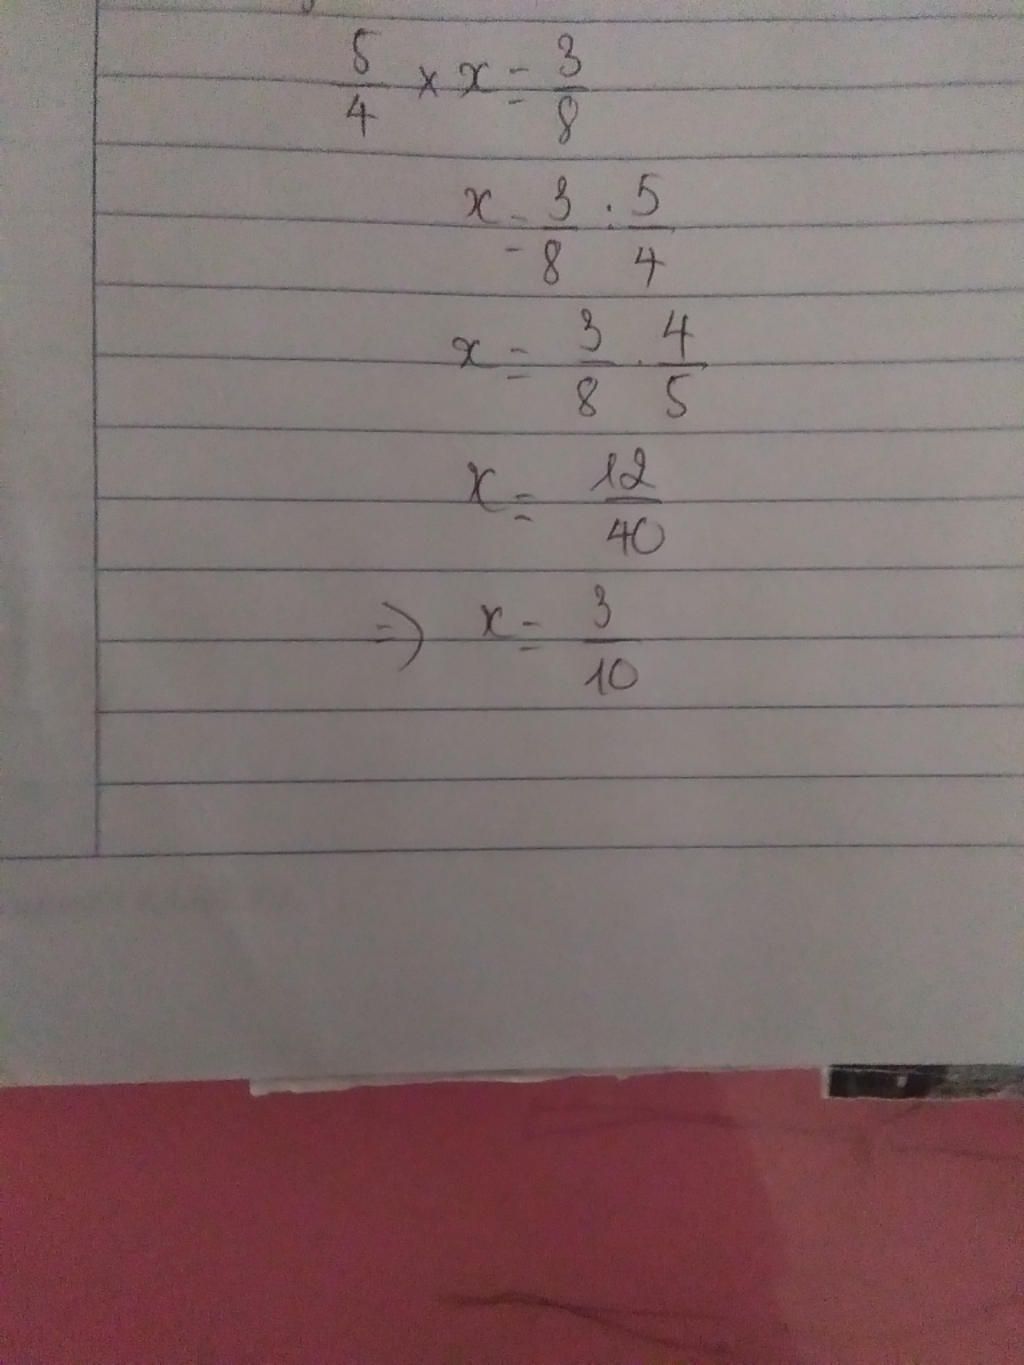 5/4 × x = 3/8
x = 3/8 : 5/4
x = 3/8 . 4/5
x = 12/40
=) x = 3/10